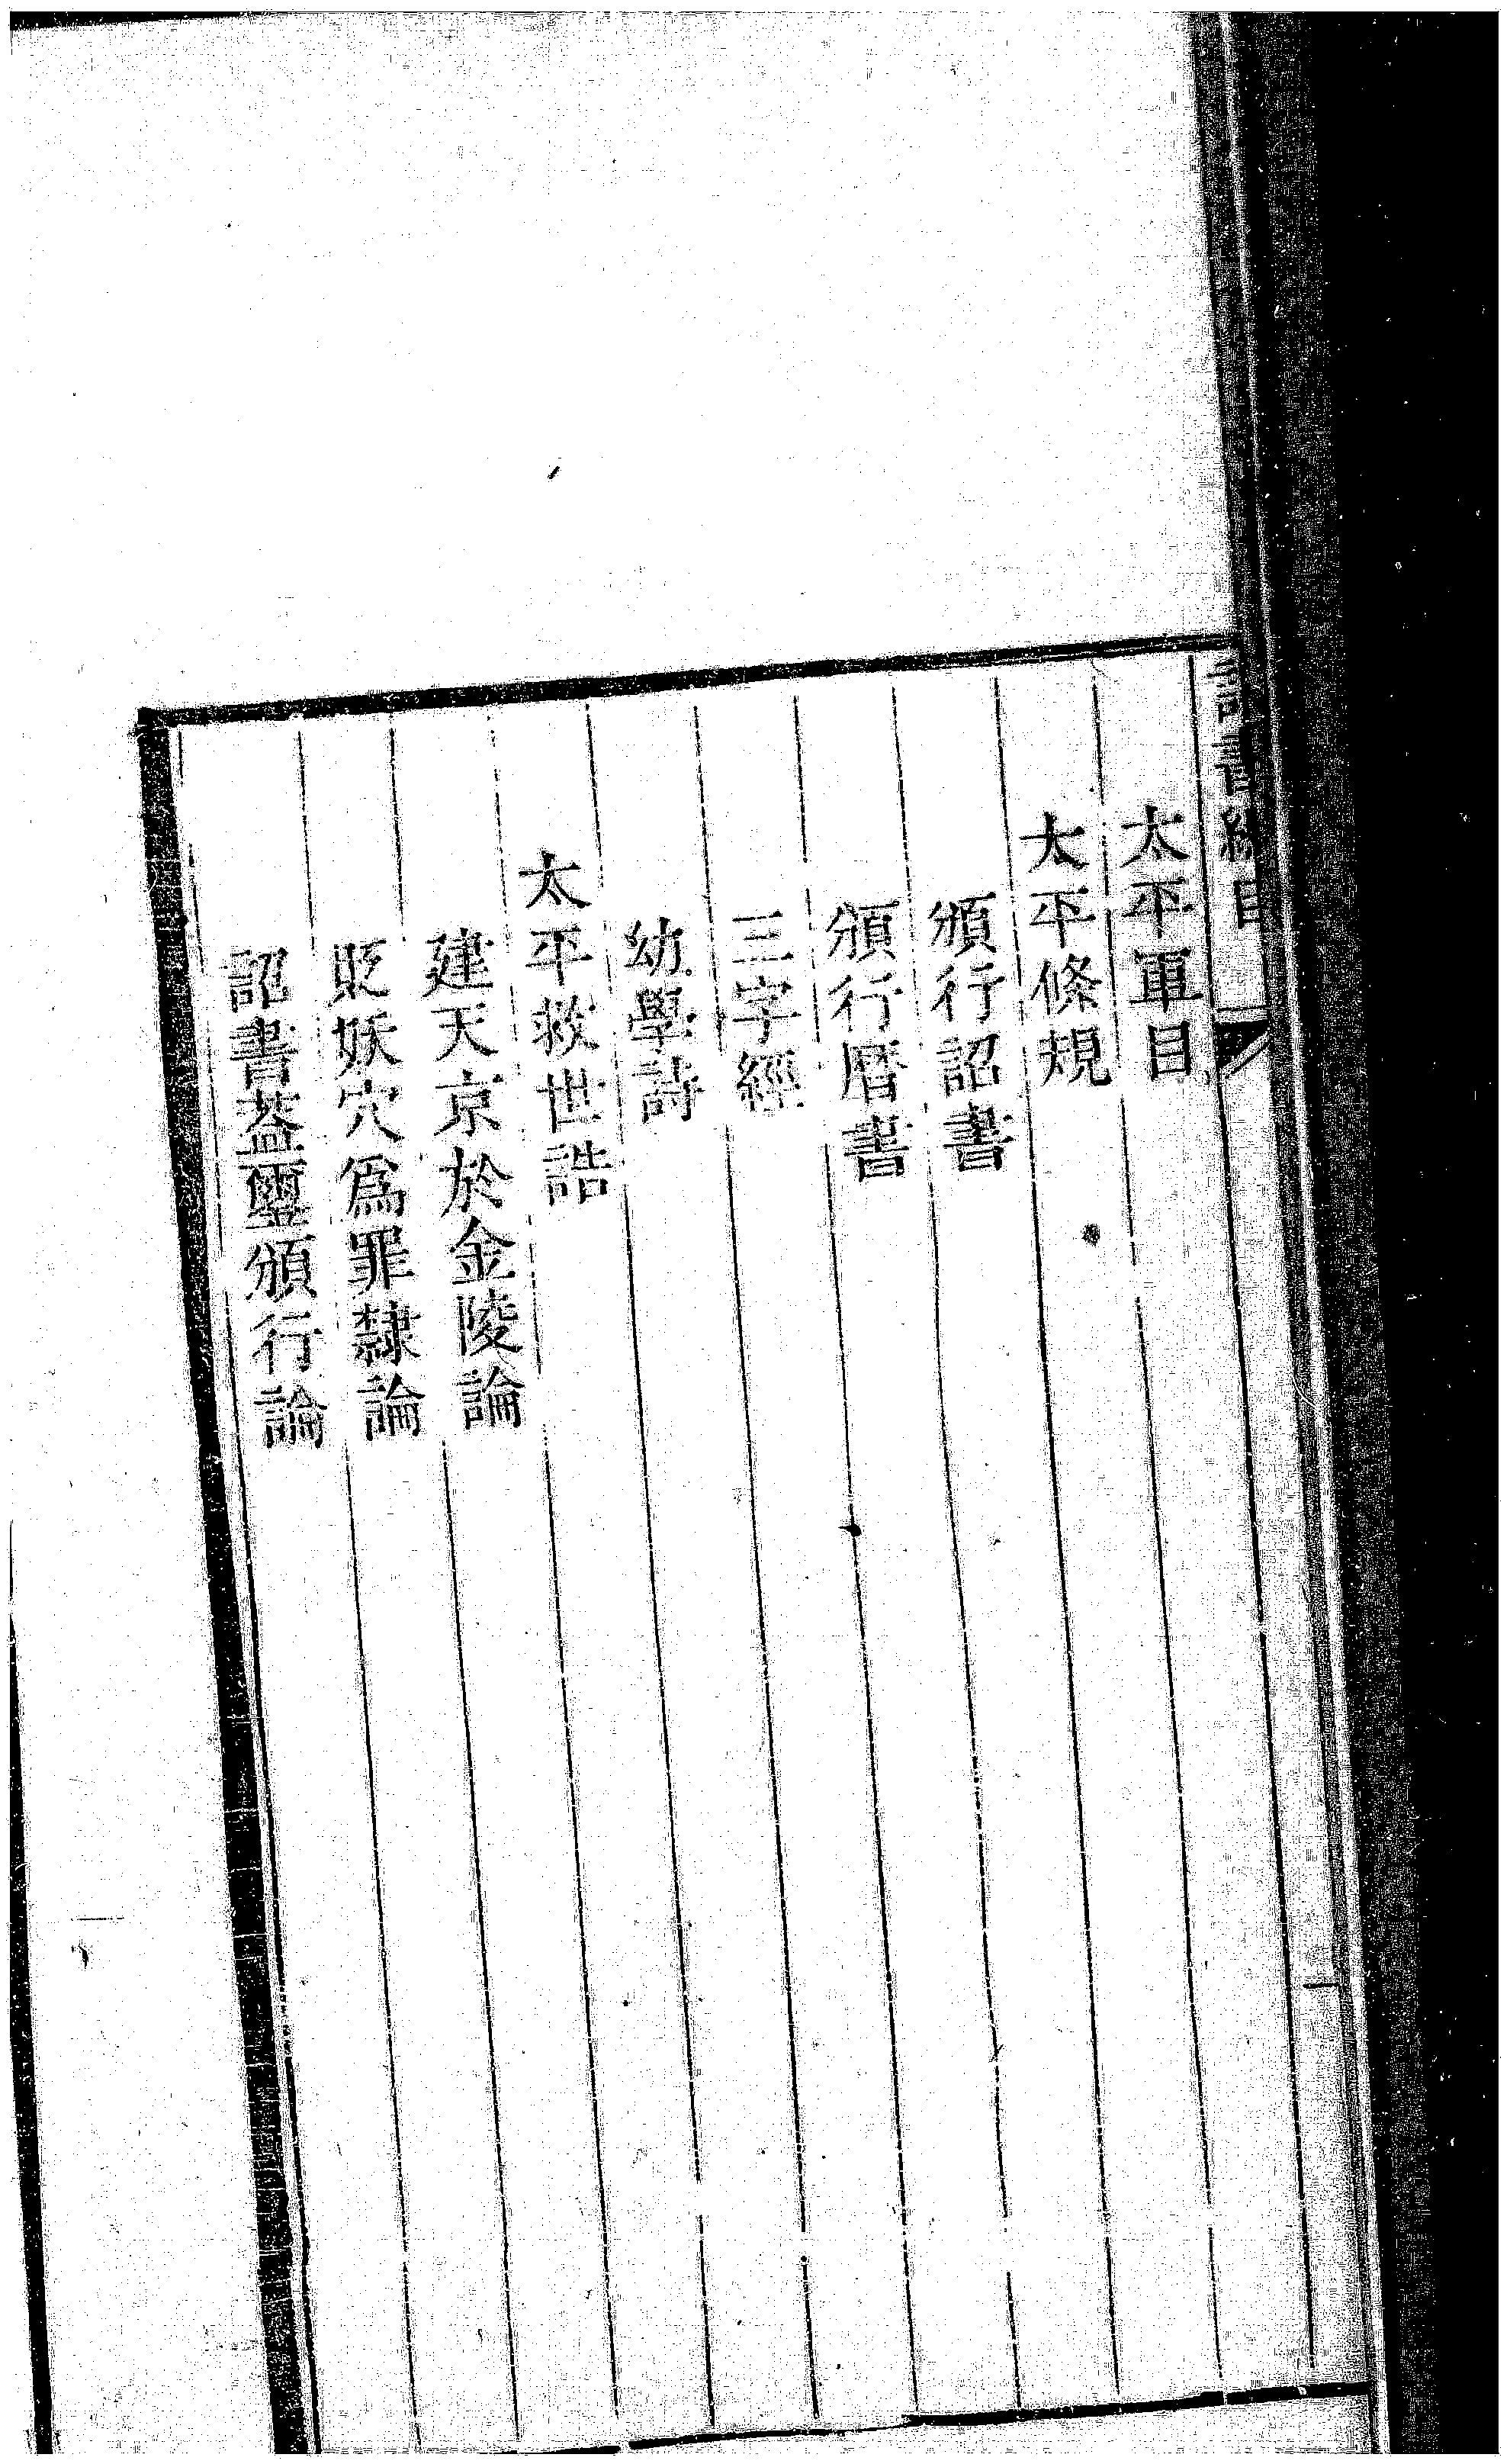 總目
太平軍目
太平條規
頒行詔書
頒行曆書
三字經
幼學詩
太平救世誥
建天京於金陵論
貶妖穴爲罪隸論
詔書蓋璽頒行論